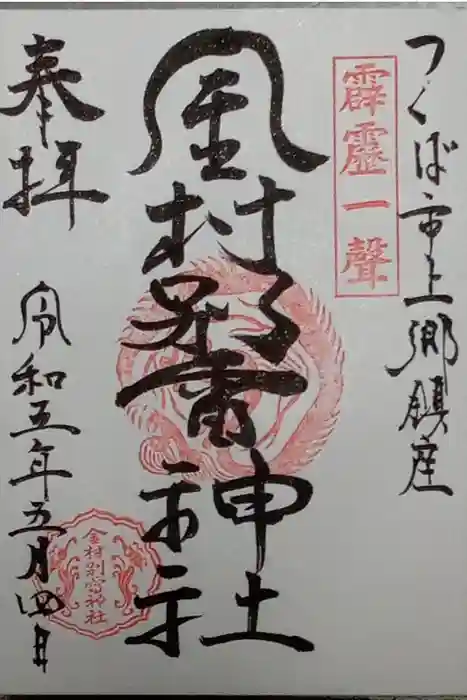 つくば市上郷鎮座
霹靂一聲
金村別雷神社
奉拝
令和五年五月四日
金村別雷神社